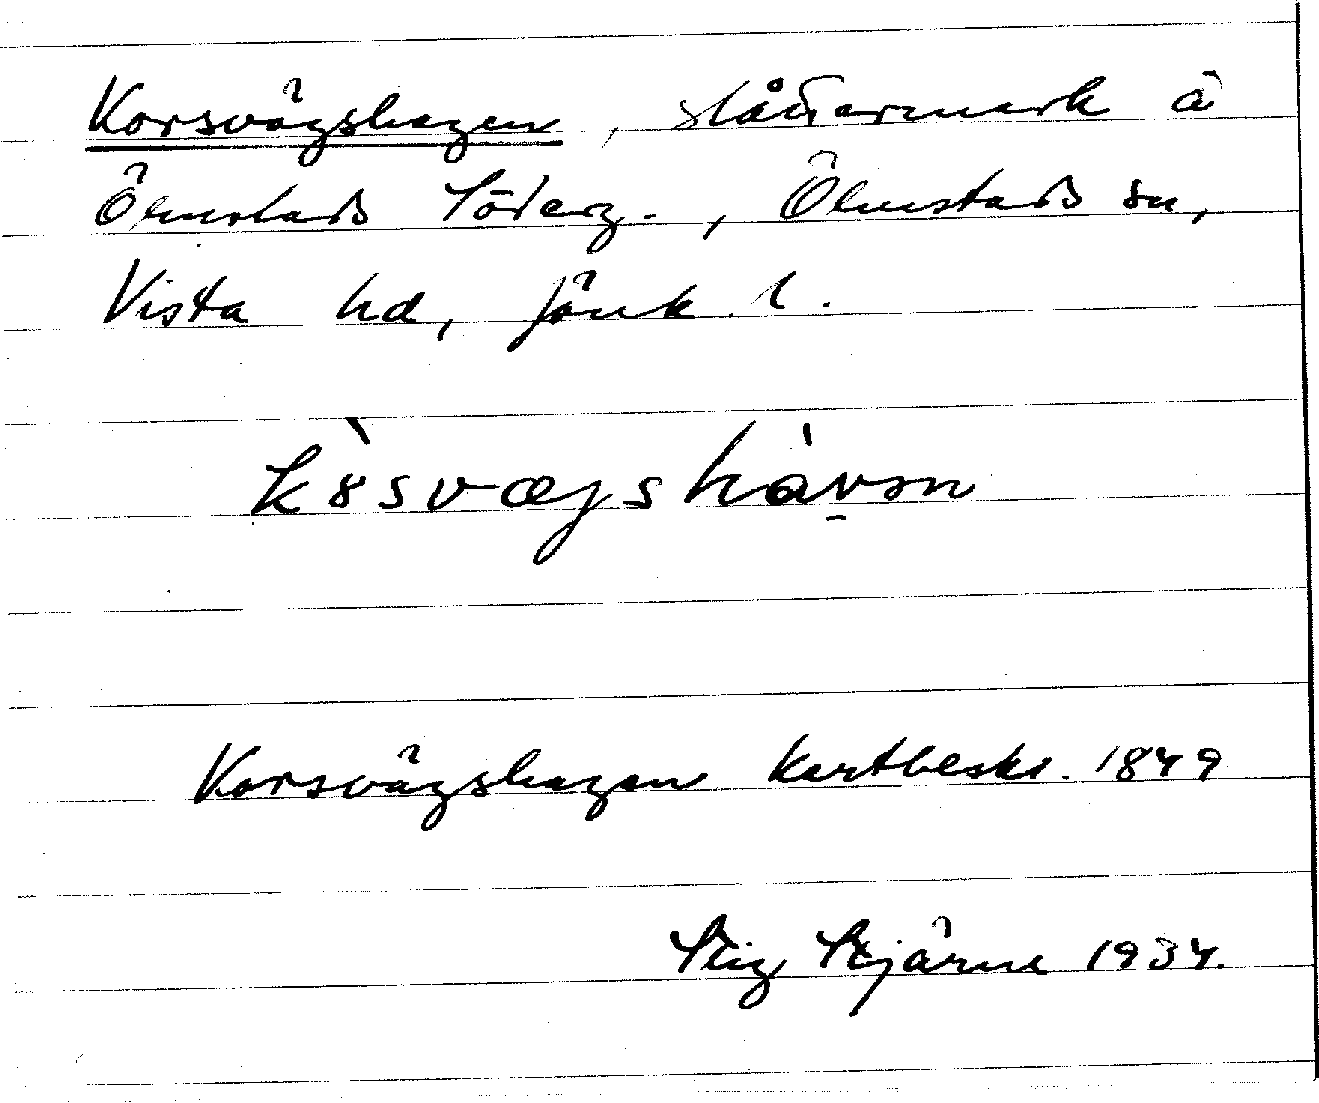 Korsvägshagen, slåttermark å
Ölmstads Söderg., Ölmstads sn,
Vista hd, Jönk. l.
kɵ̀svæjshàvən
Korsvägshagen kartbeskr. 1849
Stig Stjärne 1934.